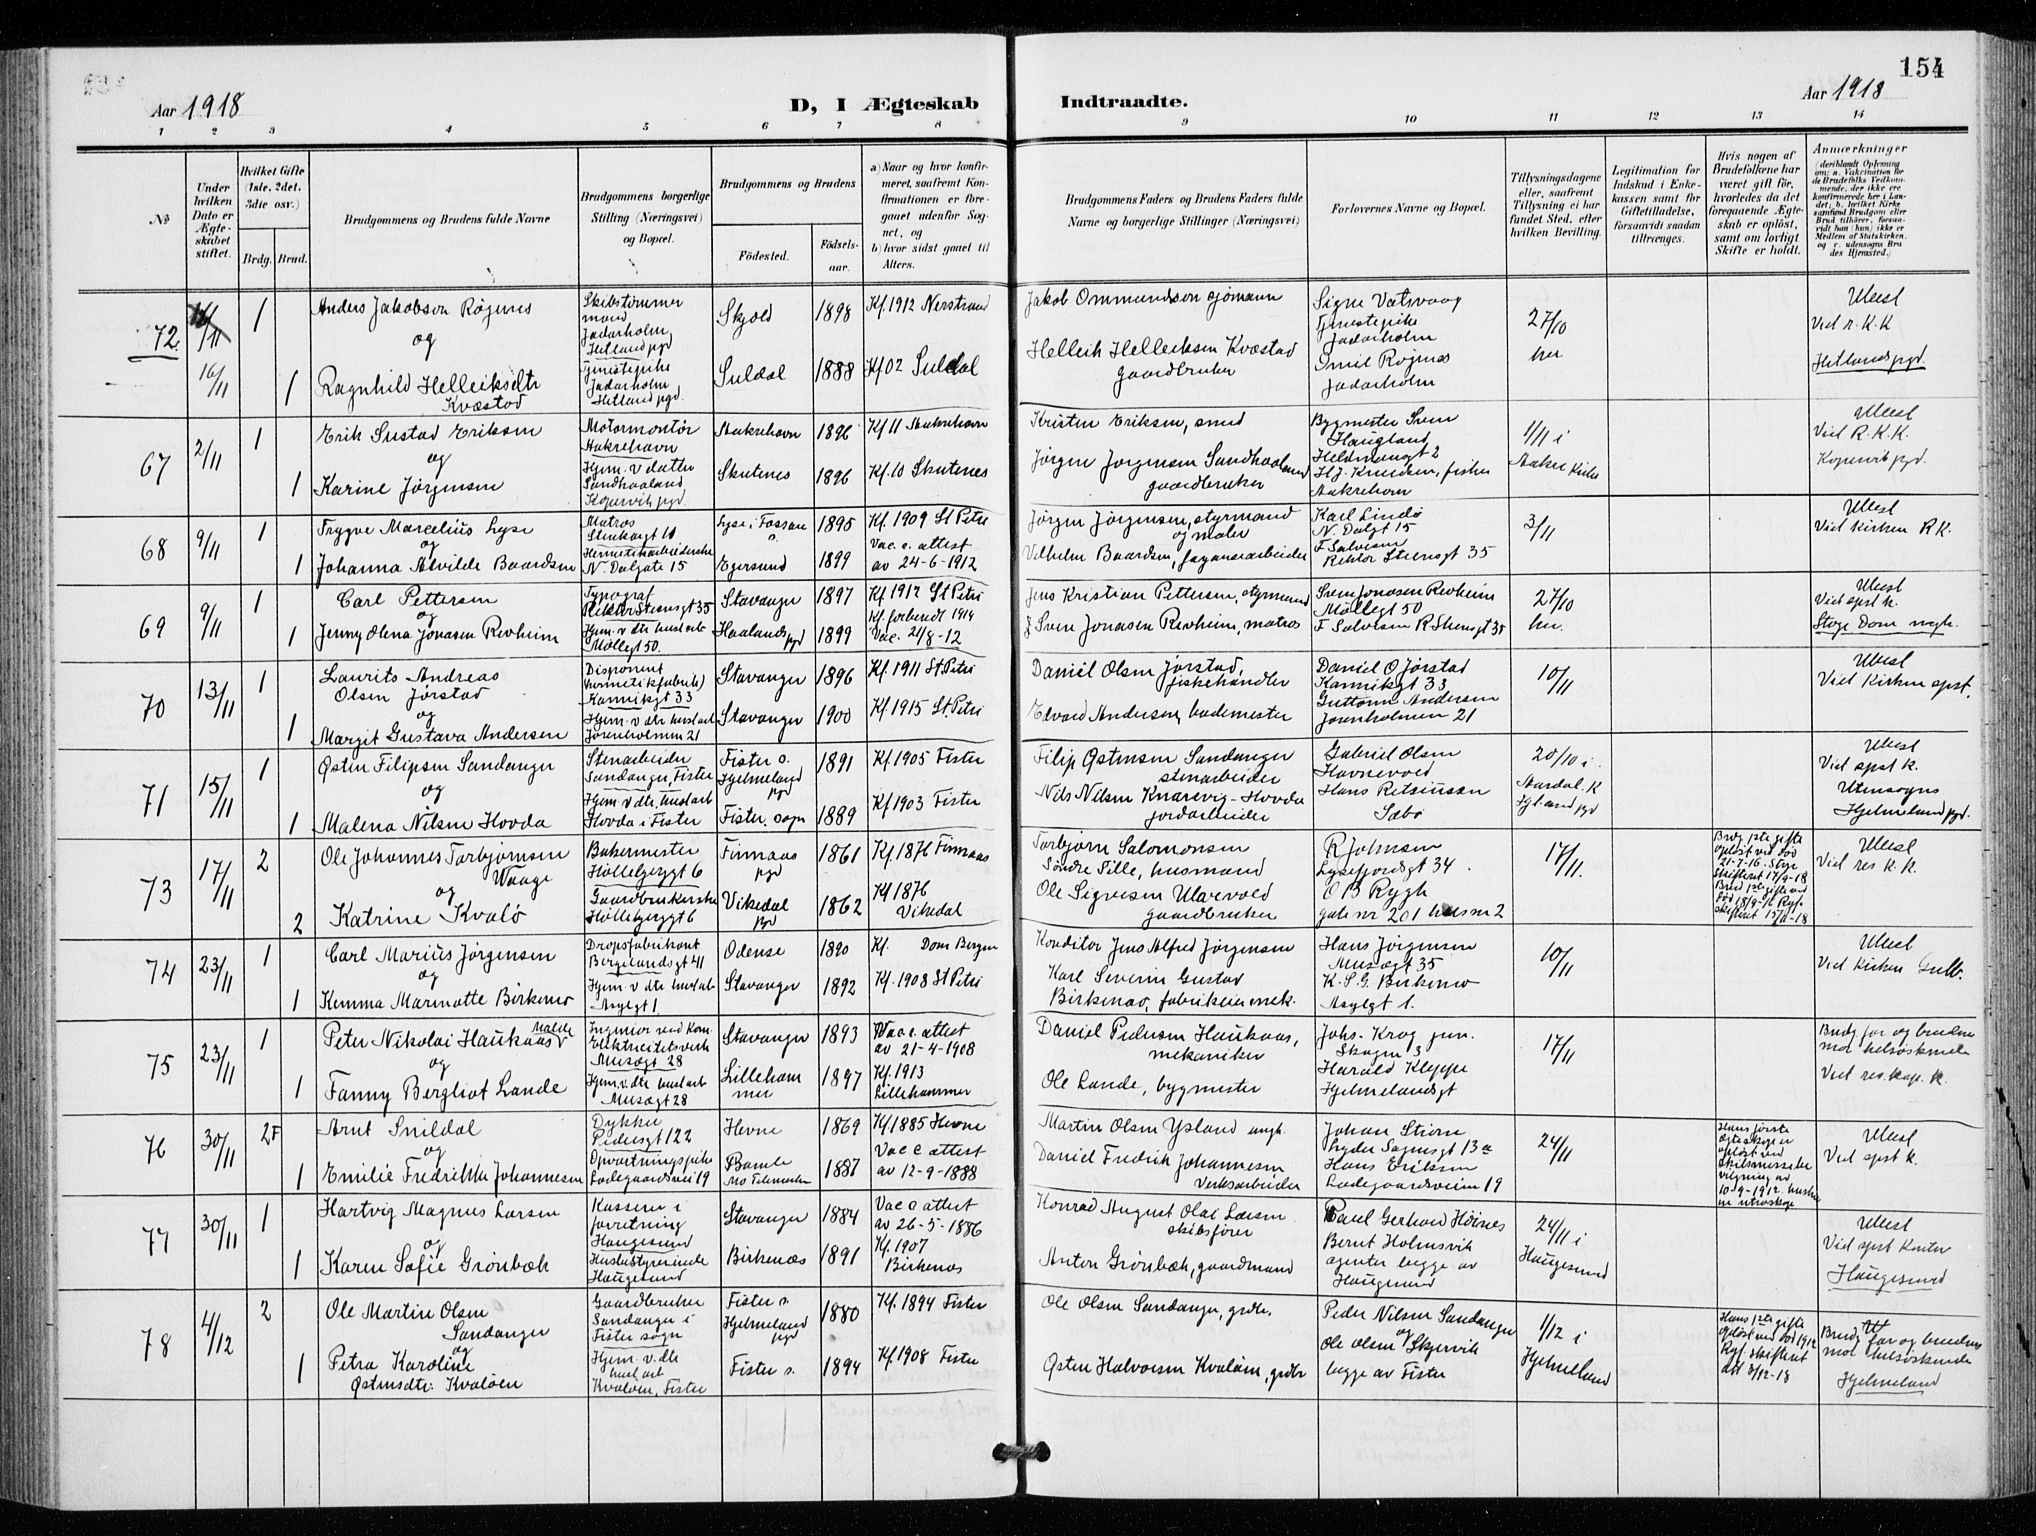 154
Aar 1918
D, I Ægteskab
Indtraadte.
Aar 1918
1 2 3 4 5 6 7 8
9 10 11 12 13 14
No
Under hvilken Dato er Ægteskabet stiftet.
Hvilket Gifte (1ste, 2det, 3die osv.)
Brdg. Brud.
Brudgommens og Brudens fulde Navne
Brudgommens borgerlige Stilling (Næringsvei) og Bopæl.
Brudgommens og Brudens
Födested.
Födselsaar.
a) Naar og hvor konfirmeret, saafremt Konfirmationen er foregaaet udenfor Sognet, og
b) hvor sidst gaaet til Alters.
Brudgommens Faders og Brudens Faders fulde Navne og borgerlige Stillinger (Næringsvei)
Forlovernes Navne og Bopæl.
Tillysningsdagene eller, saafremt Tillysning ei har fundet Sted, efter hvilken Bevilling.
Legitimation for Indskud i Enkekassen samt for Giftetilladelse, forsaavidt saadan tiltrænges.
Hvis nogen af Brudefolkene har været gift för, hvorledes da det foregaaende Ægteskab er oplöst, samt om lovligt Skifte er holdt.
Anmærkninger
72.
16/11
1
Anders Jakobson Røgenes
og
1
Ragnhild Helleiksdtr
Kvæstad
Skibstømmermand
Jadarholm
Hetland pgd
Tjenestepike
Jadarholm
Hetland pgd.
Skjold 1898 Kf. 1912 Nerstrand
Suldal 1888 Kf 02 Suldal
Jakob Ommundson sjömann
Helleik Helleiksen Kvæstad
gaardbruker
Signe Vatsvaag
Tjenestepike
Jadarholm
Jadarholm
27/10
her
Ubest
Vid r. K. K
Hetlands pgd
67
2/11
1
Erik Sustad Eriksen
og
1
Karine Jørgensen
Motormontör
Aakrehavn
Hjem. v datter
Sandhaaland
Kopervik pgd
Aakrehavn 1896 Kf 11 Aakrehavn
Skutenes 1896 Kf. 10 Skutenes
Kristen Eriksen, smed
Jörgen Jørgensen Sandhaaland
gaardbruker
Bygmester Sven
Haugland
H.J. Knudsen, fisker
Aakrehavn
1/11 i
Aakre Kirke
Ubest
Vid R. K. K.
Kopervik pgd.
68
9/11
1
Trygve Marcelius Lyse
og
1
Johanna Alvilde Baardsen
Matros
Stenkargt 10
Hermetikarbeiderske
N. Dalgate 15
Lyse i Fossan s. 1895 Kf. 1909 St Petri
Egersund 1899 Vac. c. attest
av 24-6-1912
Jørgen Jørgensen, styrmand
og maler
Vilhelm Baardsen, fayansearbeider
Karl Lindö
N. Dalgt 15
F Salvesen
Rektor Steensgt 35
3/11
Ubest
Vid Kirken R K.
69
9/11
1
Carl Pettersen
og
1
Jenny Olena Jonasen Revheim
Typograf
Rektor Stensgt 35
Hjem. v dtr husl arb
Møllegt 50.
Stavanger 1897 Kf. 1912 St Petri
Haalands pgd 1899 Kf. forbundt 1914
Vac. 21/8-12
Jens Kristian Pettersen, styrmand
Sven Jonasen Revheim, matros
Sven Jonasen Revheim
Møllegt 50
F Salvesen R. Stensgt 35
27/10
her.
Ubest
Vid spst k.
70
13/11
1
Laurits Andreas
Olsen Jørstad
og
1
Margit Gustava Andersen
Disponent
(hermetikfabrik)
Kannikgt 33
Hjem. v dtr husl arb
Jorenholmen 21
Stavanger 1896 Kf. 1911 St Petri
Stavanger 1900 Kf 1915 St. Petri
Daniel Olsen Jørstad,
fiskehandler
Elvard Andersen, bademester
Daniel O. Jørstad
Kannikgt 33
Guttorm Andersen
Jorenholmen 21
10/11
Ubest
Vid Kirken spst.
71
15/11
1
Østen Filipsen Sandanger
og
1
Malena Nilsen Hovda
Stenarbeider
Sandanger, Fister
Hjem v dtr, husl arb
Hovda i Fister
Fister s. Hjelmeland pgd 1891 Kf. 1905 Fister
Fister. sogn 1889 Kf 1903 Fister
Filip Østensen Sandanger
stenarbeider
Nils Nilsen Knarevig-Hovda
jordarbeider
Gabriel Olsen
Havnevold
Hans Retsiussen
Sæbø
20/10 i
Aardal. K
Ubest
Vid spst k.
Utensogns
Hjelmeland pgd.
73
17/11
2
Ole Johannes Torbjørnsen
Waage
og
2
Katrine Kvalø
Bakermester
Hollebergsgt 6
Gaardbrukerske
Høllebergsgt 6
Finnaas pgd 1861 Kf. 1876 Finnaas
Vikedal pgd 1862 Kf 1876
Vikedal
Torbjørn Salomonsen
Søndre Tille, husmand
Ole Sigvesen Ulavold
gaardbruker
R Johnsen
Lysefjordsgt 34
O B Rygh
gate nr 201 hus nr 2
17/11.
Ubest
Vid res k. k.
74
23/11
1
Carl Marius Jørgensen
og
1
Kemma Marmotte Birkemo
Dropsfabrikant
Bergelandsgt 41
Hjem. v dtr husl arb
Asylgt 1.
Odense 1890 Kf. Dom Bergen
Stavanger 1892 Kf. 1908 St Petri
Konditor Jens Alfred Jørgensen
Karl Severin Gustav
Birkemo, fabrikeier mek.
Hans Jørgensen
Musægt 35
K. S. G. Birkemo
Asylgt 1.
10/11
Ubest
Vid Kirken
75
23/11
1
Peter Nikolai Haukaas Malde
og
1
Fanny Bergliot Lande
Ingeniør ved Kom.
Elektricitetsverk
Musægt 28
Hjem. v. dtr husl arb
Musægt 28
Stavanger 1893 Vac c attest
av 21-4-1908
Lillehammer 1897 Kf. 1913
Lillehammer
Daniel Pedersen Haukaas,
mekaniker
Ole Lande, bygmester
Johs. Krog jun.
Skagen 3
Harald Kleppe
Hjelmelandsgt
17/11
Vid res. kap. k.
76
30/11
2F
Arnt Snildal
og
1
Emilie Fredrikke Johannesen
Dykker
Pedersgt 122
Opvartningspike
Ladegaardsvei 19
Hevne 1869 Kf 1885 Hevne
Bamle 1887 Vac c attest
av 12-9-1888
Martin Olsen Ysland
Daniel Fredrik Johannesen
Verksarbeider
Johan Stirn
Lyder Sagensgt 13a
Hans Eriksen
Ladegaardsveien 19
24/11
Ubest
Vid spst k.
77
30/11
1
Hartvig Magnus Larsen
og
1
Karen Sofie Grönbæk
Kasserer i
forretning
Haugesund
Husbestyrerinde
Haugesund
Stavanger 1884 Vac c attest
av 26-5-1886
Birkenæs 1891 Kf. 1907
Birkenes
Konrad August Olai Larsen
skibsfører
Anton Grönbæk, gaardmand
Paul Gerhard Höines
Bernt Holmsvik
agenter begge av
Haugesund
24/11 i
Haugesund
Ubest
Vid spst Kontor
Haugesund
78
4/12
2
Ole Martin Olsen
Sandanger
og
1
Petra Karoline
Østensdtr. Kvaløen
Gaardbruker
Sandanger i
Fister sogn
Hjem. v. dtr
husl arb
Kvaløen, Fister
Fister s. Hjelmeland pgd 1880 Kf. 1894 Fister
Fister s. 1894 Kf. 1908 Fister
Ole Olsen Sandanger, grdbr.
Østen Halvorsen Kvaløen, grdbr
Peder Nilsen Sandanger
og
Ole Olsen Skjervik
begge av Fister
1/12 i
Hjelmeland
Hjelmeland